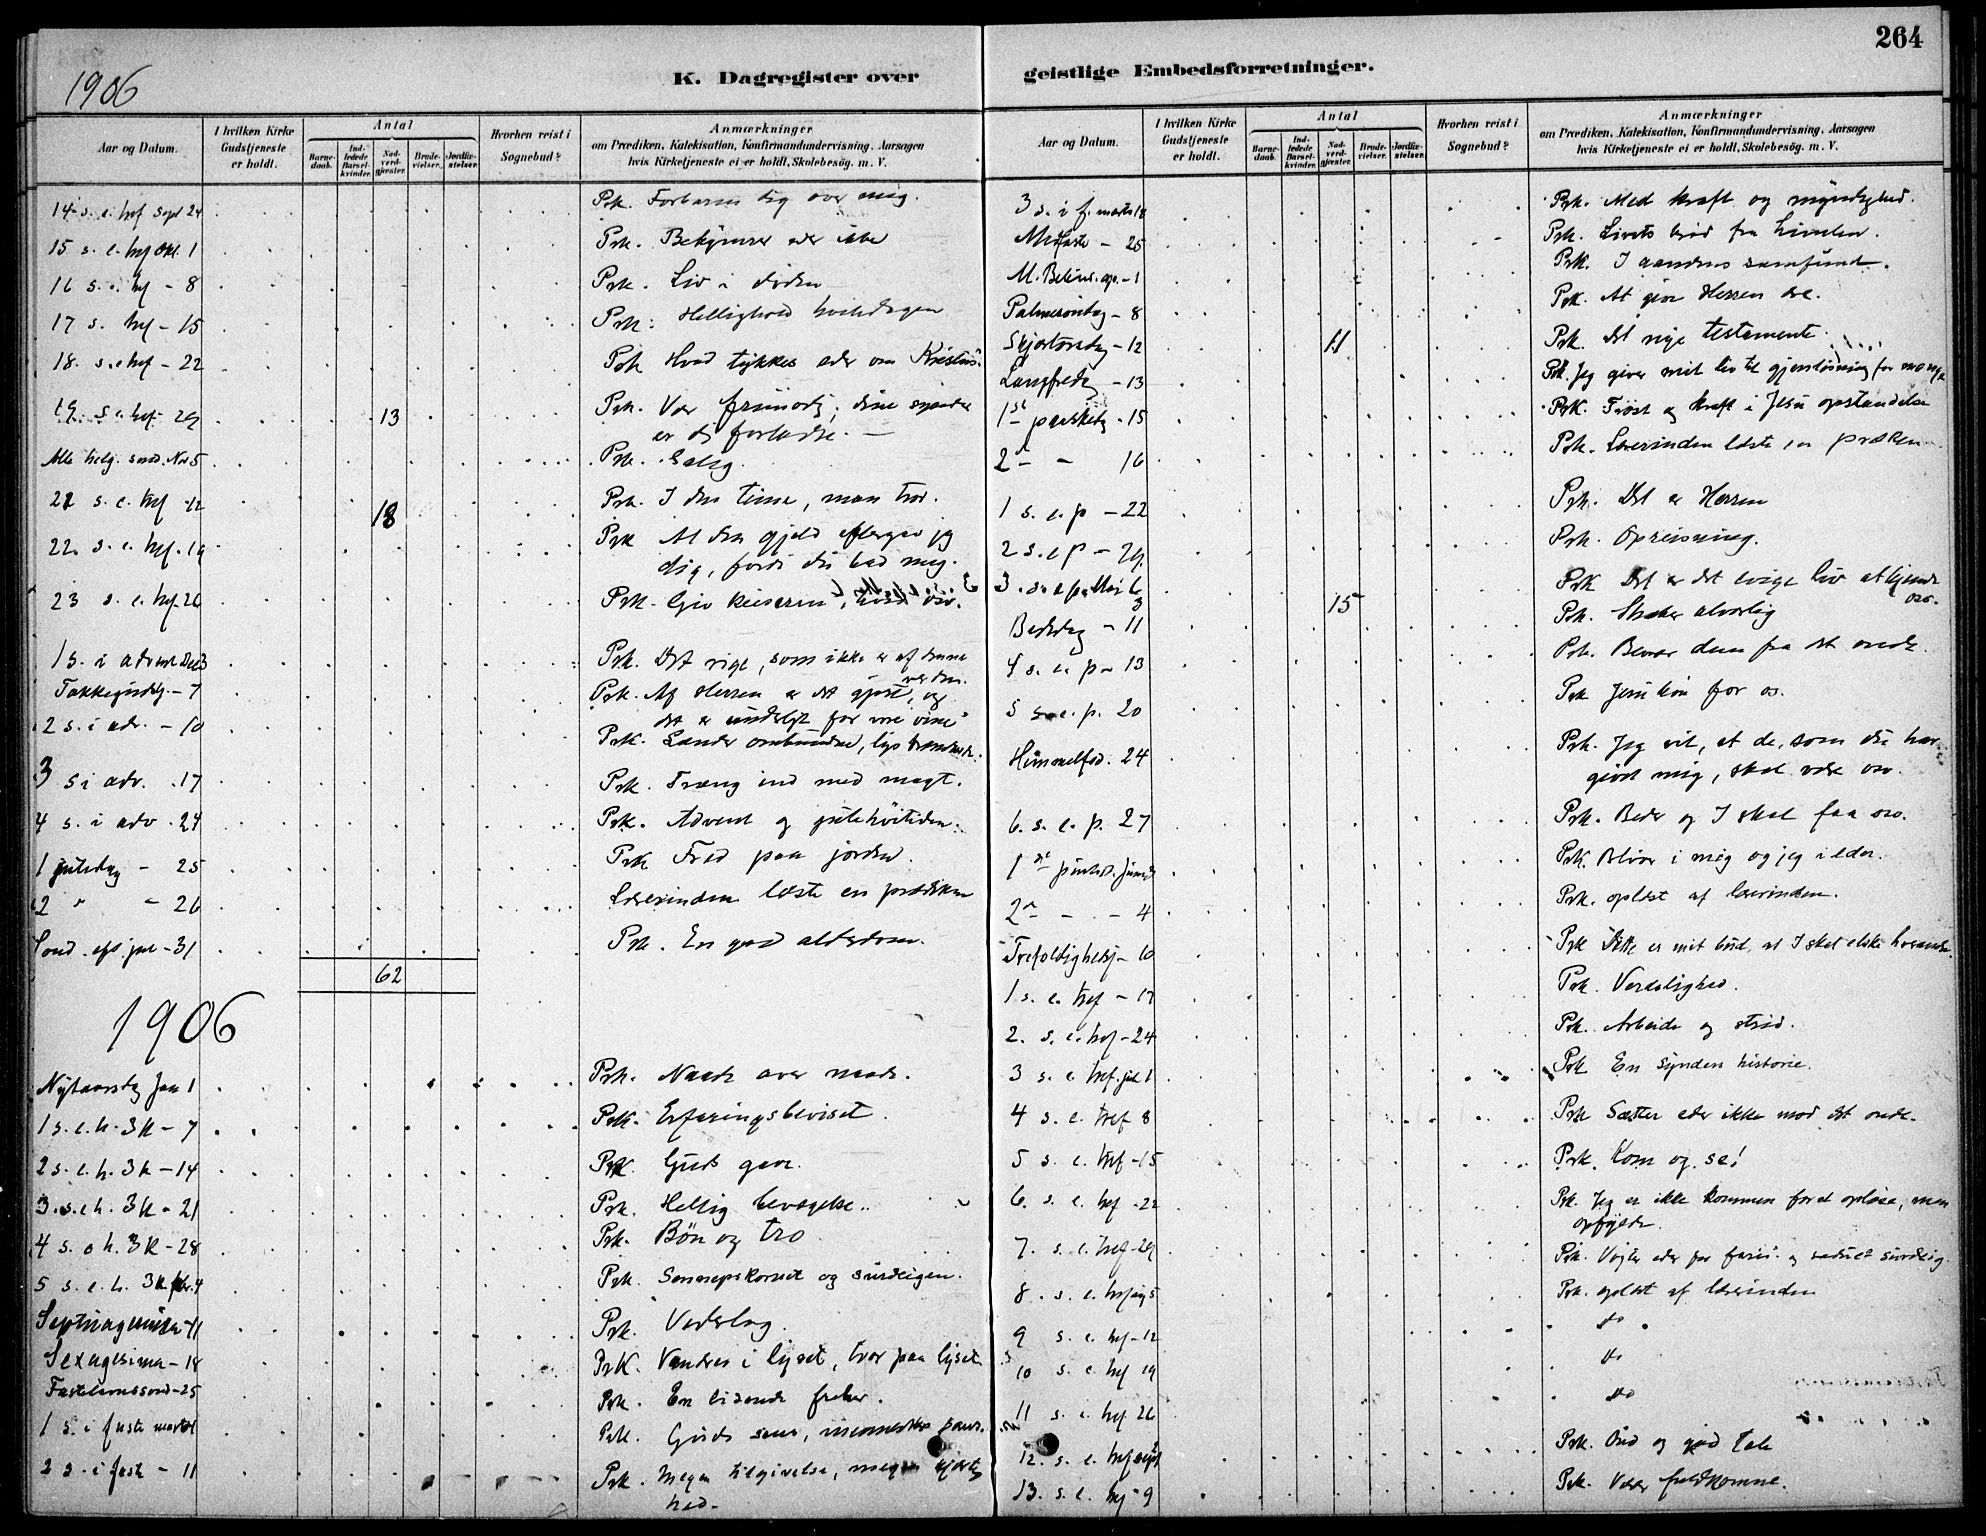 264
1906
K. Dagregister over
Aar og Datum.
I hvilken Kirke Gudstjeneste er holdt.
Antal
Barnedaab.
Indledede Barselkvinder.
Nadverdgjester.
Brudevielser.
Jordfæstelser.
Hvorhen reist i Sognebud?
Anmærkninger
om Prædiken, Katekisation, Konfirmandundervisning, Aarsagen
hvis Kirketjeneste ei er holdt, Skolebesøg. m. V.
14. s. e. tref Sept 24 Prk. Forbarm dig over mig.
15 s. e. tref Okt. 1 Prk. Bekymrer eder ikke
16 s. e. tref - 8 Prk. Liv i døden
17 s. tref - 15 Prk. Hellighold hviledagen
18. s. e tref - 22 Prk Hvad tykkes eder om Kristus.
19. s. e. tref - 29 13 Prk. Vær frimodig; dine synder
er dig forladte. —
Alle helg. sønd. Nov 5 Prk. Salig.
21 s. e. tref - 12 18 Prk. I den time, man tror.
22. s. e. tref. 19 Prk Al den gjeld eftergav jeg
dig, fordi du bad mig.
23 s. e. tref. 26 Prk. Giv keiseren osv.
1 s. i advent Dec 3 Prk. Det rige, som ikke er af denne
verden.
Takkegudstj. - 7 Prk. Af Herren er det gjort, og
det er underligt for vore øine
2 s. i adv. - 10 Prk. Lænder ombundne, lys brændende.
3 s i adv. . 17 Prk. Træng ind med magt.
4 s. i adv . 24 Prk. Advent og julehøitiden.
1 juledag - 25 Prk Fred paa jorden.
2 " - 26 Lærerinden læste en prædiken
Sønd. eft. jul - 31 Prk. En god alderdom.
62
1906
Nytaarsdag Jan 1 Prk. Naade over naade.
1 s. e. h. 3 k - 7 Prk. Erfaringsbeviset.
2 s. e. h. 3 k - 14 Prk Guds gave.
3. s. e h. 3 k - 21 Prk. Hellig bevægelse..
4 s. e h. 3 k - 28 Prk. Bøn og tro
5 s. e. h. 3 k febr. 4 Prk. Sennepskornet og surdeigen.
Septuagesima - 11 Prk. Vederlag.
Sexagesima - 18 Prk. Vandrer i lyset, tror paa lyset
Fastelavnssønd - 25 Prk. En lidende frelser.
1 s. i faste marts 4 Prk. Guds søn,
2 s. i faste - 11 Prk. Megen tilgivelse, megen kjærlig
hed.
geistlige Embedsforretninger.
Aar og Datum.
I hvilken Kirke Gudstjeneste er holdt.
Antal
Barnedaab.
Indledede Barselkvinder.
Nadverdgjester.
Brudevielser.
Jordfæstelser.
Hvorhen reist i Sognebud?
Anmærkninger
om Prædiken, Katekisation, Konfirmandundervisning, Aarsagen
hvis Kirketjeneste ei er holdt, Skolebesøg. m. V.
3 s. i f. marts 18 Prk. Med kraft og myndighed.
Midfaste - 25 Prk. Livets brød fra himlen.
M. Bebud. apr. - 1 Prk. I aandens samfund.
Palmesøndag - 8 Prk. At give Herren ære.
Skjærtorsdag - 12 11 Prk. Det nye testamente.
Langfredag - 13 Prk. Jeg giver mit liv til gjenløsning for mange
1ste paaskedag - 15 Prk. Trøst og kraft i Jesu opstandelse
2 - - 16 Prk. Lærerinden læste en præken
1 s. e. p - 22 Prk. Det er Herren
2 s. e p - 29. Prk. Opreisning.
3 . s. e p. Mai 6 Prk Det er det evige liv at kjende
osv.
Bededag - 11 15 Prk. alvorlig
4 s. e. p - 13 Prk. Bevar dem fra det onde.
5 s. e. p. 20 Prk Jesu bøn for os.
Himmelfad. 24 Prk. Jeg vil, at de, som du har
givet mig, skal være osv.
6. s. e. p. 27 Prk. Beder og I skal faa osv.
1ste pintsed. Juni 3 Prk. Bliver i mig og jeg i eder.
2 - - - 4 Prk. oplæst af lærerinden.
Trefoldighedsf - 10 Prk Dette er mit bud at I skal elske hverandre.
1 s. e. tref - 17 Prk.
2. s. e. tref - 24 Prk. Arbeide og strid.
3 s. e. tref. juli 1 Prk En synders historie.
4 s. e. tref 8 Prk Sætter eder ikke mod det onde.
5 s. e. tref - 15 Prk. Kom og se!
6. s. e. tref - 22 Prk. Jeg er ikke kommen for at opløse, men
opfylde.
7. s. e. tref - 29 Prk. Vogter eder for faris. og surdeig.
8 . s. e. tref aug 5 Prk. oplæst af lærerinden
9 s. e. tref - 12 do
10 s. e. tref 19 do
11 s. e. tref 26 do
12. s. e. tref sept 2 Prk. Ond og god tale
13. s. e. tref - 9 Prk. Vær fuldkomne.